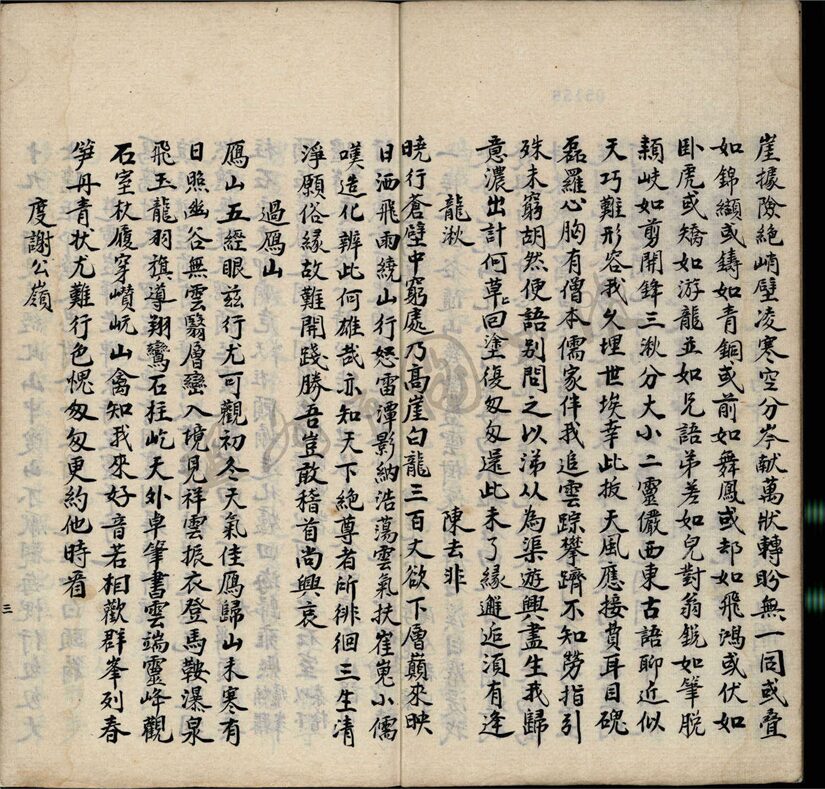 崖據險絕峭壁凌寒空分岑献萬狀轉盻無一同或疊
如錦纈或鑄如青銅或前如舞鳳或却如飛鴻或伏如
卧虎或矯如游龍並如兄語弟差如兒對翁銳如筆脫
穎峽如剪開鋒三湫分大小二靈儼西東古語聊近似
天巧難形容我久埋世埃幸此扳天風應接費耳目磈
磊羅心胸有僧本儒家伴我追雲踪攀躋不知勞指引
殊未窮胡然便語別問之以涕从為渠遊興盡生我歸
意濃出計何草〻回塗復匆匆還此未了緣邂逅湏有逢
龍湫 陳去非
曉行蒼壁中窮處乃高崖白龍三百丈欲下層巔來映
日洒飛雨繞山行怒雷潭影納浩蕩雲氣扶崔嵬小儒
嘆造化辨此何雄哉亦知天下絕尊者所徘徊三生清
淨願俗緣故難開踐勝吾豈敢稽首尚興哀
過鴈山
鴈山五經眼兹行尤可觀初冬天氣佳鴈歸山未寒有
日照幽谷無雲翳層巒入境見祥雲振衣登馬鞍瀑泉
飛玉龍羽旗導翔鸞石柱屹天外卓筆書雲端靈峰觀
石室杖履穿巑岏山禽知我來好音若相歡群峯列春
笋丹青狀尤難行色愧匆匆更約他時看
度謝公嶺
三